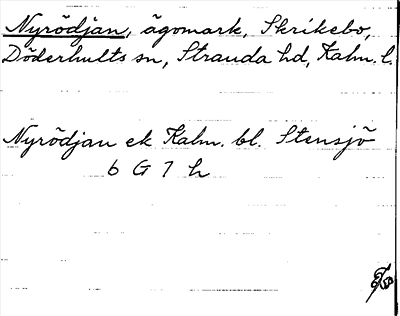 Nyrödjan, ägomark, Skrikebo,
Döderhults sn, Stranda hd, Kalm. l.
Nyrödjan ek Kalm. bl. Stensjö
6 G 7 h